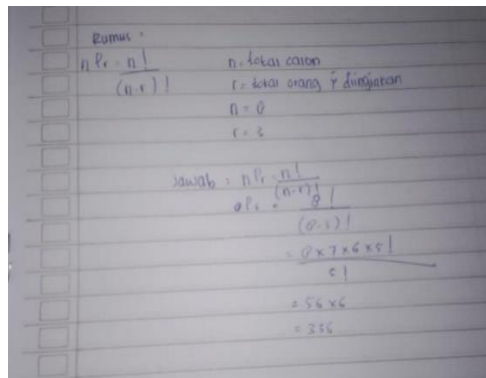 Rumus :
nPr = n!
(n-r)!
n = total calon
r = total orang yg diinginkan
n = 8
r = 3
Jawab : nPr = n!
(n-r)!
8P3 = 8!
(8-3)!
= 8 x 7 x 6 x 5!
5!
= 56 x 6
= 336